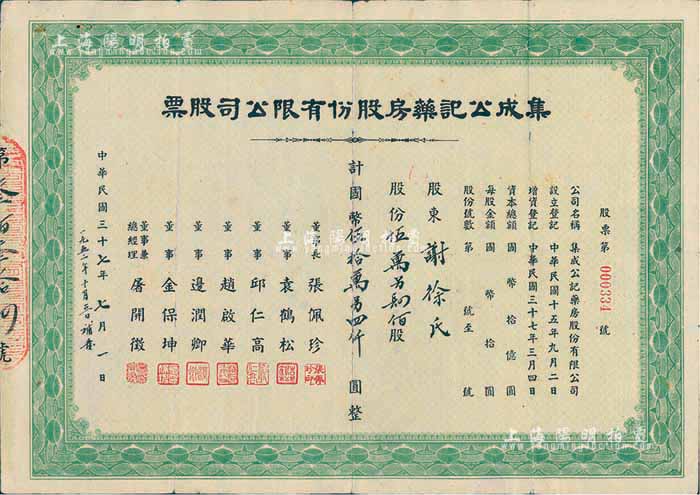 上海陽明拍賣
yangmingauction.com
集成公記藥房股份有限公司股票
股票第 000334 號
公司名稱 集成公記藥房股份有限公司
設立登記 中華民國十五年九月二日
增資登記 中華民國三十七年三月四日
資本總額 國幣拾億圓
每股金額 國幣拾圓
股份號數 第 號至 號
股東 謝徐氏
股份伍萬另肆佰股
計國幣伍拾萬另四仟圓整
董事長 張佩珍
董事 袁鶴松
董事 邱仁高
董事 趙啟華
董事 邊潤卿
董事 金保坤
董事兼總經理 屠開徵
中華民國三十七年七月一日
一九五一年十月三日補發
上海陽明拍賣
yangmingauction.com